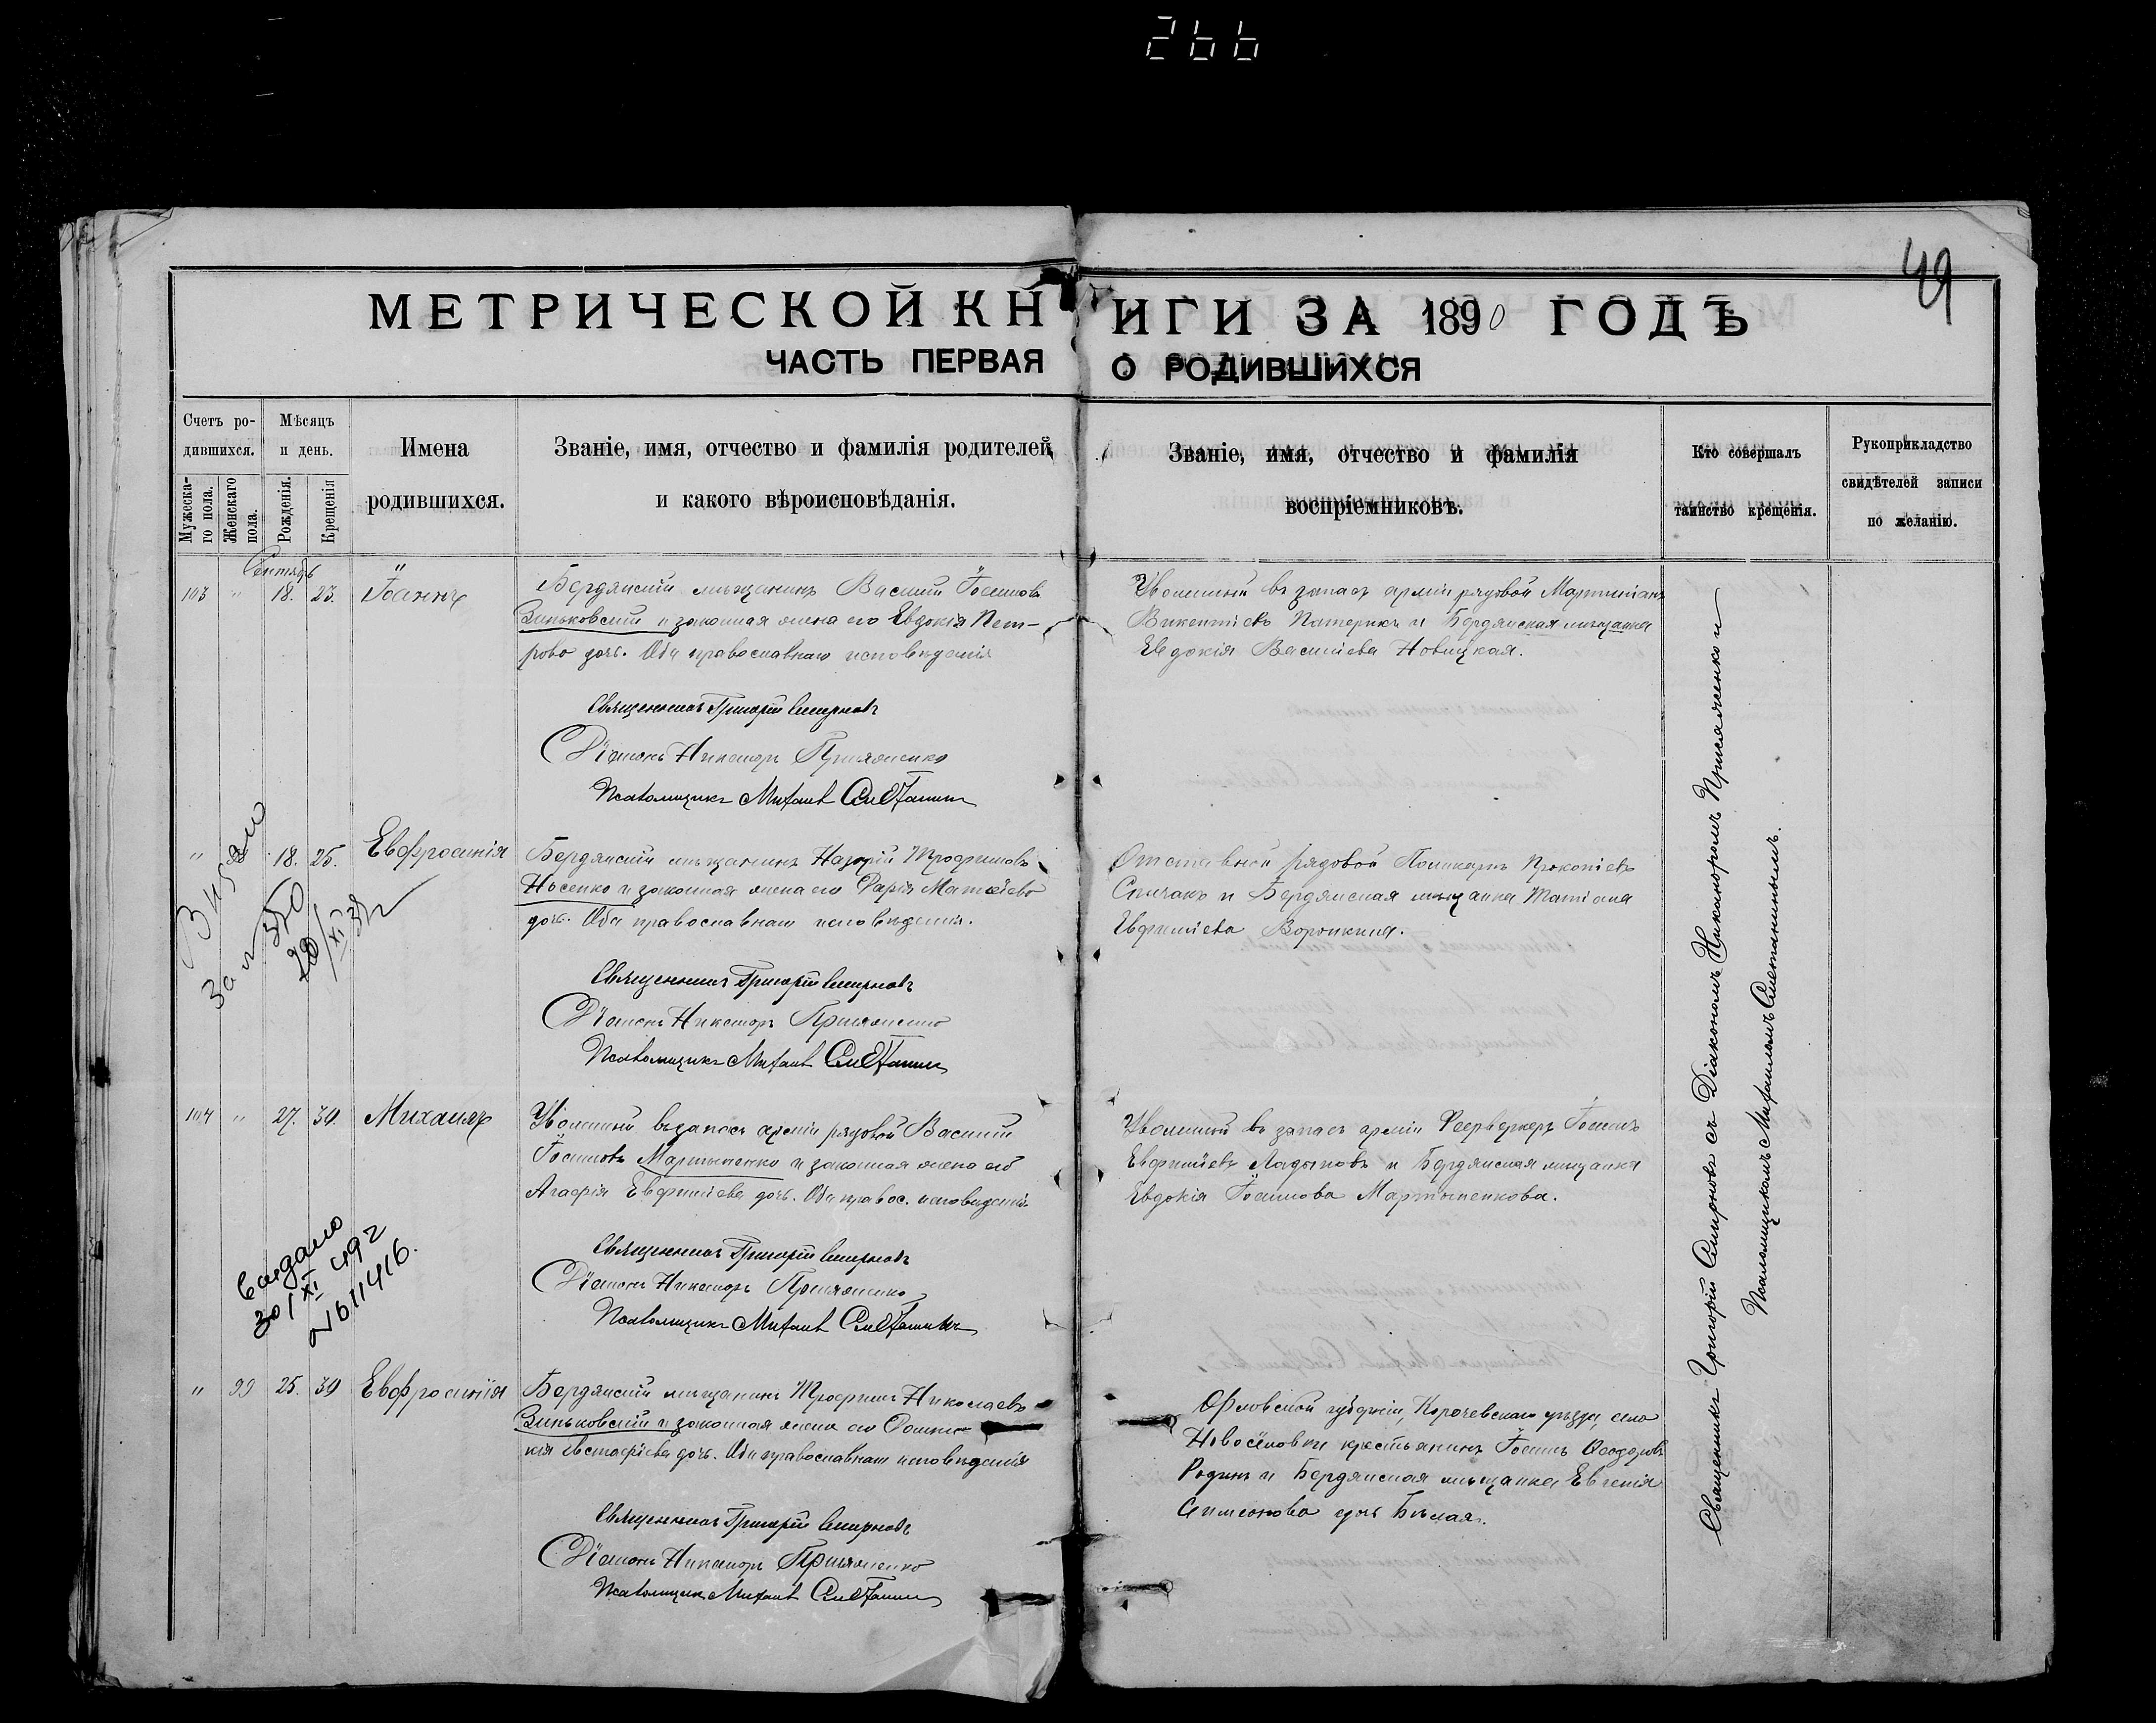 266
49
МЕТРИЧЕСКОЙ КНИГИ ЗА 1890 ГОДЪ
ЧАСТЬ ПЕРВАЯ О РОДИВШИХСЯ
Счетъ ро-
дившихся.
Мужеска-
го пола.
Женскаго
пола.
Мѣсяцъ
и день.
Рожденія.
Крещенія
Имена
родившихся.
Званіе, имя, отчество и фамилія родителей,
и какого вѣроисповѣданія.
Званіе, имя, отчество и фамилія
воспріемниковъ.
Кто совершалъ
таинство крещенія.
Рукоприкладство
свидѣтелей записи
по желанію.
Сентябрь
103 " 18. 23. Іоаннъ
Бердянскій мѣщанинъ Василій Іоанновъ
Зиньковскій и законная жена его Евдокія Пет-
рова дочь. Оба православнаго исповѣданія
Уволенный въ запасъ арміи рядовой Мартиніанъ
Викентіевъ Патерикъ и Бердянская мѣщанка
Евдокія Василіева Новицкая.
Священникъ Григорій Смирновъ
Діаконъ Никаноръ Присяженко
Псаломщикъ Михаилъ Сметанинъ
" 18. 25. Евфросинія
Бердянскій мѣщанинъ Назарій Трофимовъ
Носенко и законная жена его Дарія Матѳеева
дочь. Оба православнаго исповѣданія.
Отставной рядовой Поликарпъ Прокопіевъ
Спичакъ и Бердянская мѣщанка Татіана
Евфиміева Воронкина.
Священникъ Григорій Смирновъ
Діаконъ Никаноръ Присяженко
Псаломщикъ Михаилъ Сметанинъ
За № 350
104 " 27. 30. Михаилъ
Уволенный въ запасъ арміи рядовой Василій
Іоанновъ Мартыненко и законная жена его
Агафія Евфиміева дочь. Оба правос. исповѣданія.
Уволенный въ запасъ арміи Феерверкеръ Іоаннъ
Евфиміевъ Ладыновъ и Бердянская мѣщанка
Евдокія Іоаннова Мартыненкова.
Священникъ Григорій Смирновъ
Діаконъ Никаноръ Присяженко
Псаломщикъ Михаилъ Сметанинъ
30/XI 492
№ 611416.
" 99 25. 30 Евфросинія
Бердянскій мѣщанинъ Трофимъ Николаевъ
Зиньковскій и законная жена его Домни-
кія Евстафіева дочь. Оба православнаго исповѣданія
Орловской губерніи, Карачевскаго уѣзда, села
Новосёловки крестьянинъ Іоаннъ Ѳеодоровъ
Родинъ и Бердянская мѣщанка Евгенія
Симеонова дочь Бѣлая.
Священникъ Григорій Смирновъ
Діаконъ Никаноръ Присяженко
Псаломщикъ Михаилъ Сметанинъ
Священникъ Григорій Смирновъ съ Діакономъ Никаноромъ Присяженко и
Псаломщикомъ Михаиломъ Сметанинымъ.